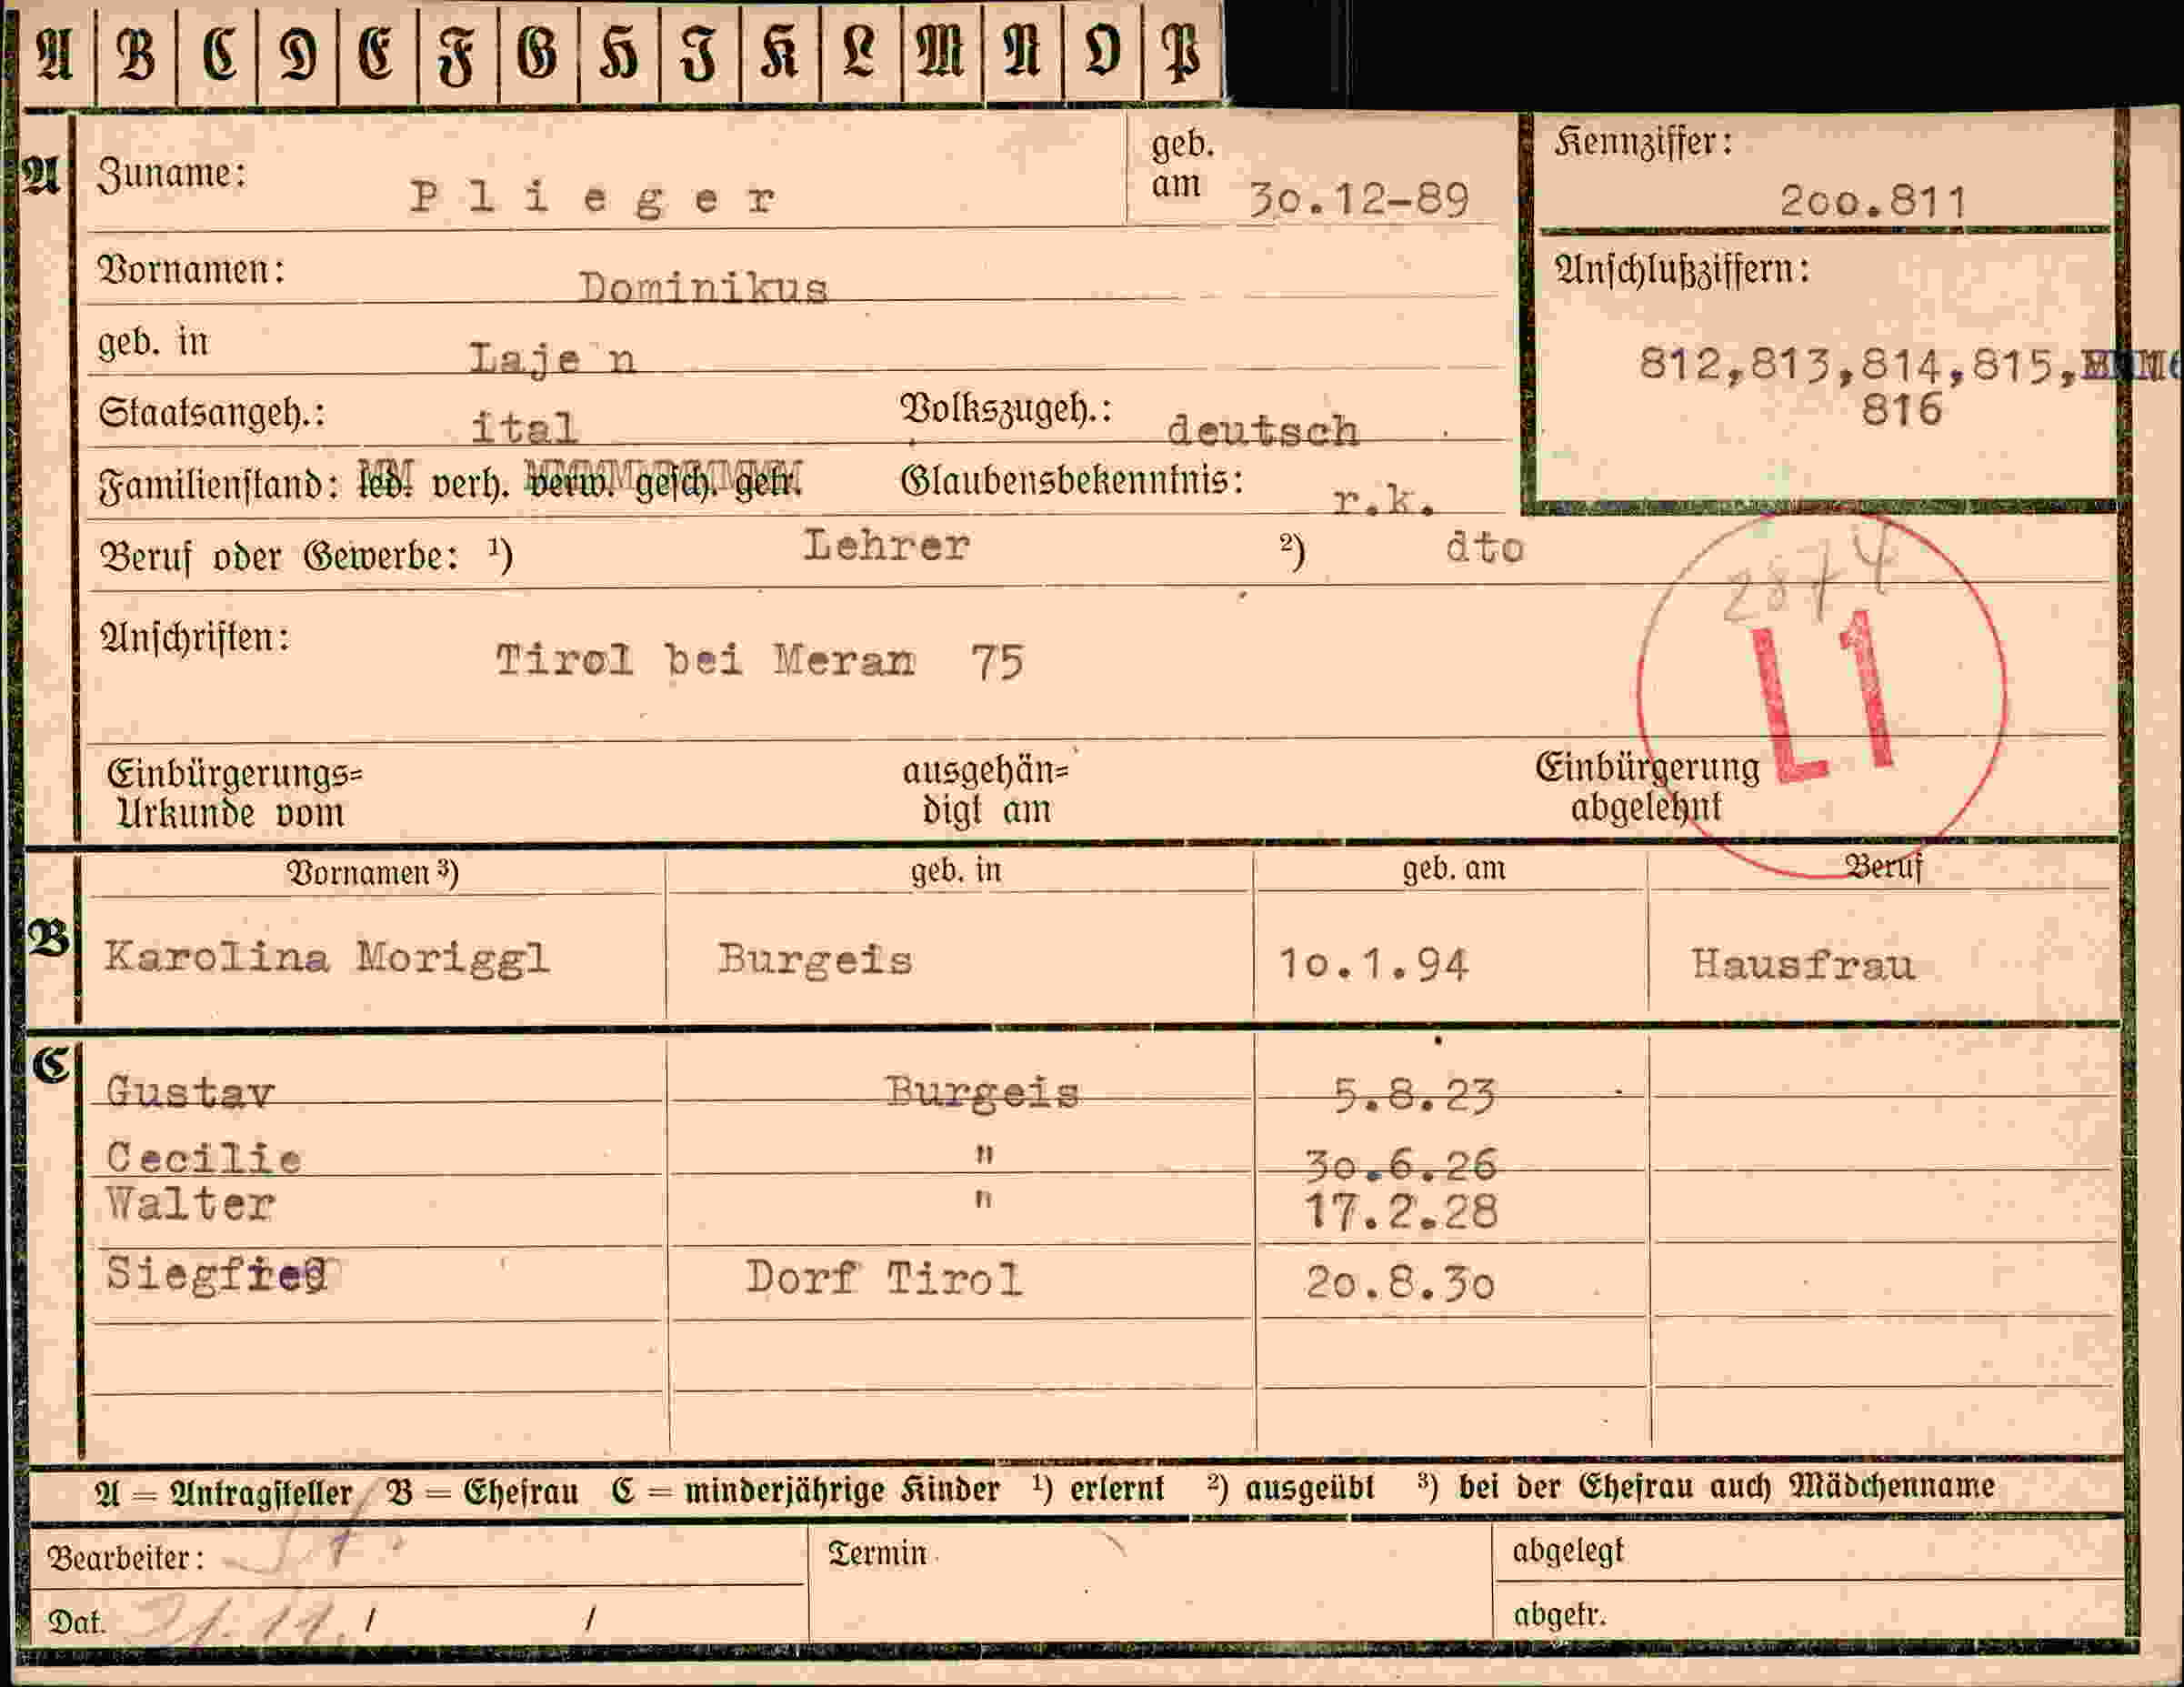 A B C D E F G H I K L M N O P
A Zuname: Plieger geb. am 30.12-89 Kennziffer: 200.811
Vornamen: Dominikus Anschlußziffern:
geb. in Laje n 812,813,814,815,
816
Staatsangeh.: ital Volkszugeh.: deutsch
Familienstand: led. verh. verw. gesch. getr. Glaubensbekenntnis: r.k.
Beruf oder Gewerbe: ¹) Lehrer ²) dto
2874
Anschriften: Tirol bei Meran 75
L1
Einbürgerungs= ausgehän= Einbürgerung
Urkunde vom digt am abgelehnt
Vornamen ³) geb. in geb. am Beruf
B Karolina Moriggl Burgeis 10.1.94 Hausfrau
C Gustav Burgeis 5.8.23
Cecilie " 30.6.26
Walter " 17.2.28
Siegfried Dorf Tirol 20.8.30
A = Antragsteller B = Ehefrau C = minderjährige Kinder ¹) erlernt ²) ausgeübt ³) bei der Ehefrau auch Mädchenname
Bearbeiter: Termin abgelegt
Dat. 21.11. / / abgetr.